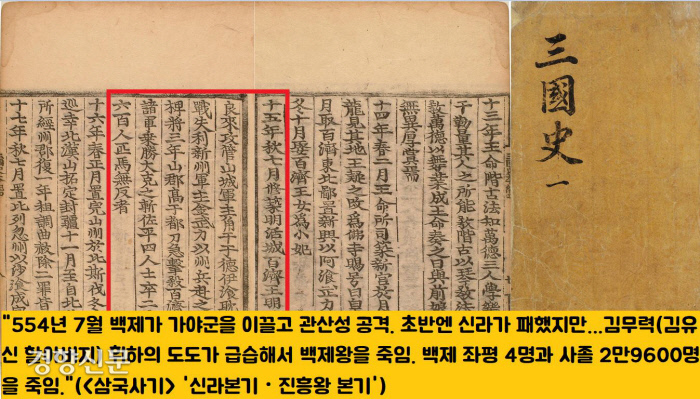 三國史 一
十三年王命階古法知萬德三人學樂
于勒量其人之所能敎階古以琴敎法
敎萬德以舞業成王命奏之曰與前娘
無異厚賞焉
十四年春二月王命所司築新宮於月
龍見其地王疑之改爲佛寺賜号曰皇
月取百濟東北鄙置新州以阿飡武力
冬十月娶百濟王女爲小妃
十五年秋七月修築明活城百濟王明
良來攻管山城軍主角干于德伊飡耽
戰失利新州軍主金武力以州兵赴之
裨將三年山郡高干都刀急擊殺百濟
諸軍乗勝大克之斬佐平四人士卒二
六百人匹馬無反者
十六年春正月置完山州於比斯伐冬
巡幸北漢山拓定封疆十一月至自北
所經州郡復一年租調曲赦除二罪皆
十七年秋七月置比列忽州以沙飡成宗
"554년 7월 백제가 가야군을 이끌고 관산성 공격. 초반엔 신라가 패했지만...김무력(김유
신 할아버지) 휘하의 도도가 급습해서 백제왕을 죽임. 백제 좌평 4명과 사졸 2만9600명
을 죽임."(<삼국사기> '신라본기·진흥왕 본기')
경향신문